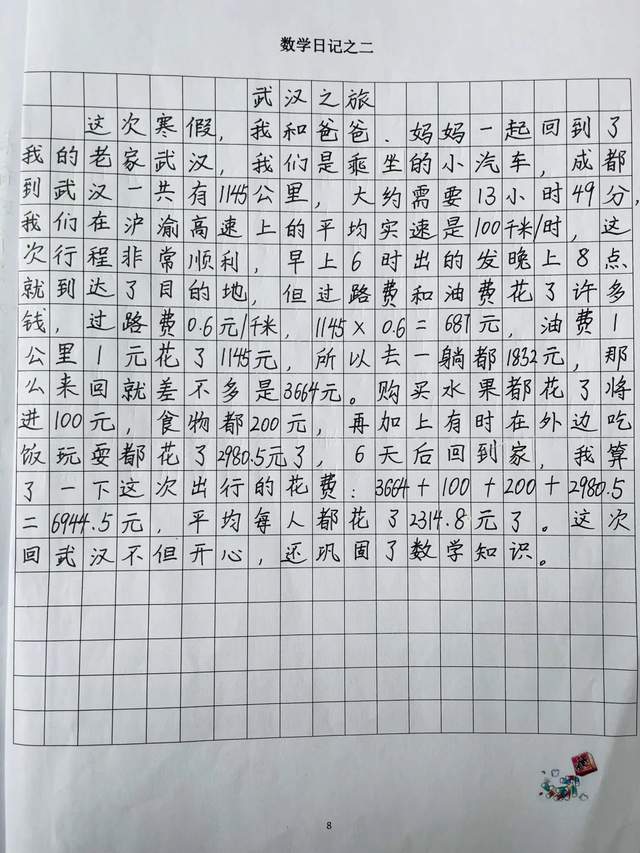 数学日记之二
武汉之旅
这次寒假，我和爸爸．妈妈一起回到了
我的老家武汉，我们是乘坐的小汽车，成都
到武汉一共有1145公里，大约需要13小时49分，
我们在沪渝高速上的平均实速是100千米/时，这
次行程非常顺利，早上6时出的发晚上8点
就到达了目的地，但过路费和油费花了许多
钱，过路费0.6元/千米，1145×0.6=687元，油费1
公里1元花了1145元，所以去一躺都1832元，那
么来回就差不多是3664元。购买水果都花了将
进100元，食物都200元，再加上有时在外边吃
饭玩耍都花了2980.5元了，6天后回到家，我算
了一下这次出行的花费：3664+100+200+2980.5
=6944.5元，平均每人都花了2314.8元了。这次
回武汉不但开心，还巩固了数学知识。
8